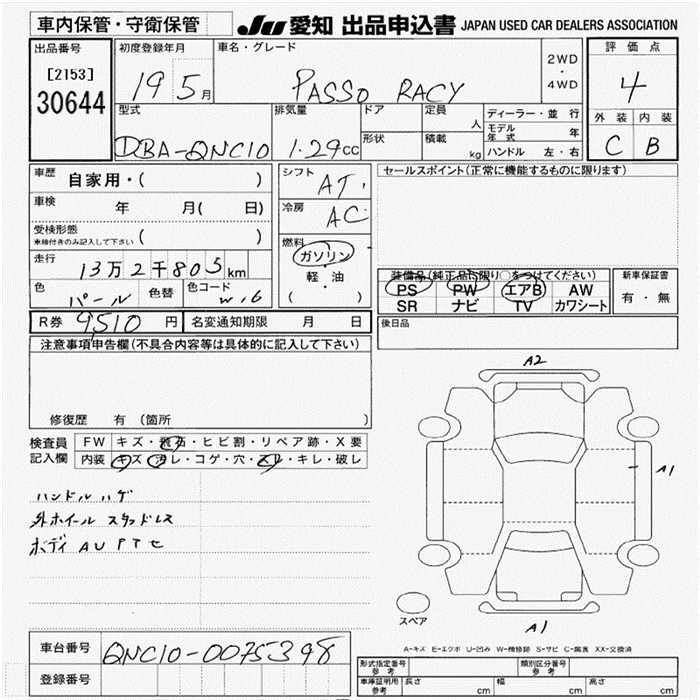 車内保管・守衛保管
JU 愛知 出品申込書 JAPAN USED CAR DEALERS ASSOCIATION
出品番号 初度登録年月 車名・グレード 評価点
[2153]
30644
19 5月 PASSO RACY 2WD・4WD 4
型式 排気量 ドア 定員 人 ディーラー・並行 外装 内装
DBA-QNC10 1.29cc 形状 積載 kg モデル年式 年 C B
ハンドル 左・右
車歴 自家用・( ) シフト AT セールスポイント(正常に機能するものに限ります)
車検 年 月( 日) 冷房 AC
受検形態 ( )
車検付きのみ記入して下さい
燃料 ガソリン・軽・油 ( )
走行 13万2千805km
装備品(純正品に限り○をつけてください) 新車保証書
色 パール 色替 色コード W16
PS PW エアB AW 有・無
SR ナビ TV カワシート
R券 9,510円 名変通知期限 月 日 後日品
注意事項申告欄(不具合内容等は具体的に記入して下さい)
修復歴 有(箇所
検査員記入欄 FW キズ・飛石・ヒビ割・リペア跡・X要
内装 キズ・汚レ・コゲ・穴・スレ・キレ・破レ
ハンドルハゲ
外ホイール スタッドレス
ボディ AUPTセ
A2
A1
A1
スペア
A-キズ E-エクボ U-凹み W-補修跡 S-サビ C-腐食 XX-交換済
車台番号 QNC10-0075398
登録番号
形式指定番号 参考 類別区分番号 参考
車庫証明用 参考 長さ cm 幅 cm 高さ cm